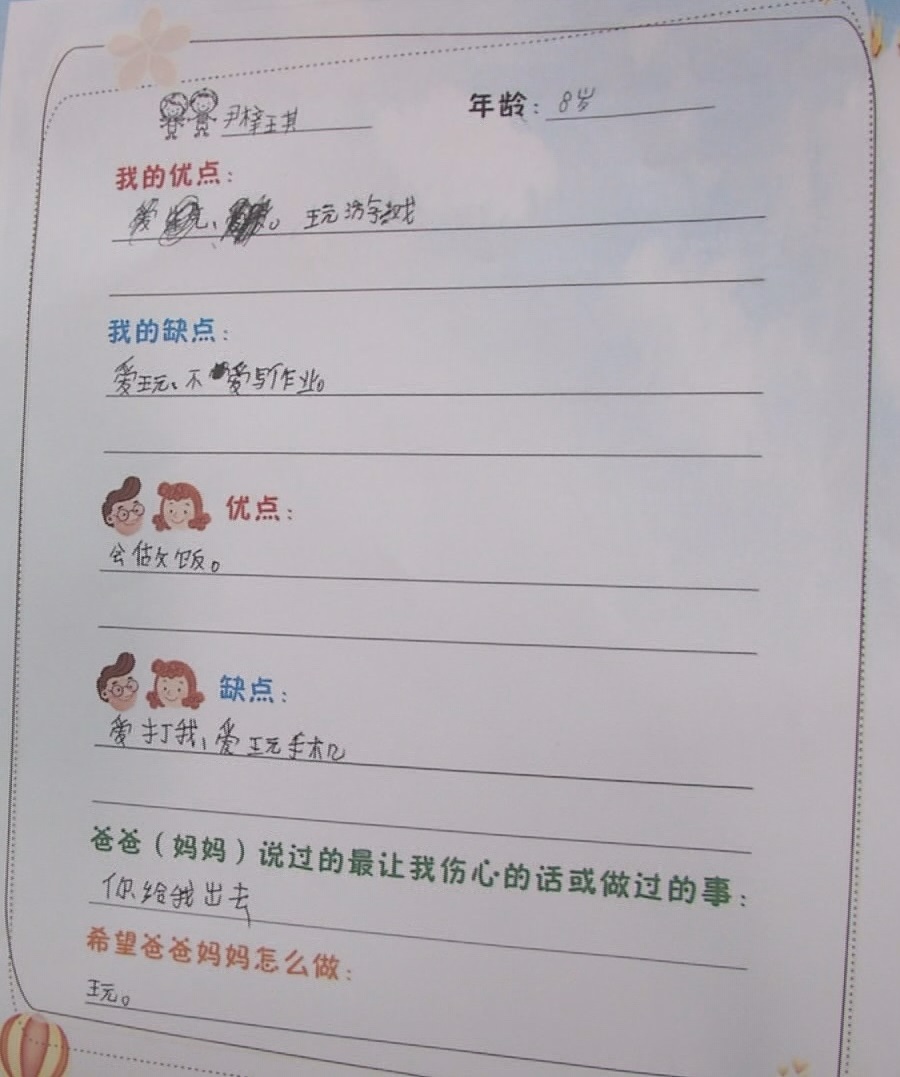 尹梓琪 年龄：8岁
我的优点：
爱玩、玩游戏
我的缺点：
爱玩、不爱写作业。
优点：
会做饭。
缺点：
爱打我，爱玩手机
爸爸（妈妈）说过的最让我伤心的话或做过的事：
你给我出去
希望爸爸妈妈怎么做：
玩。